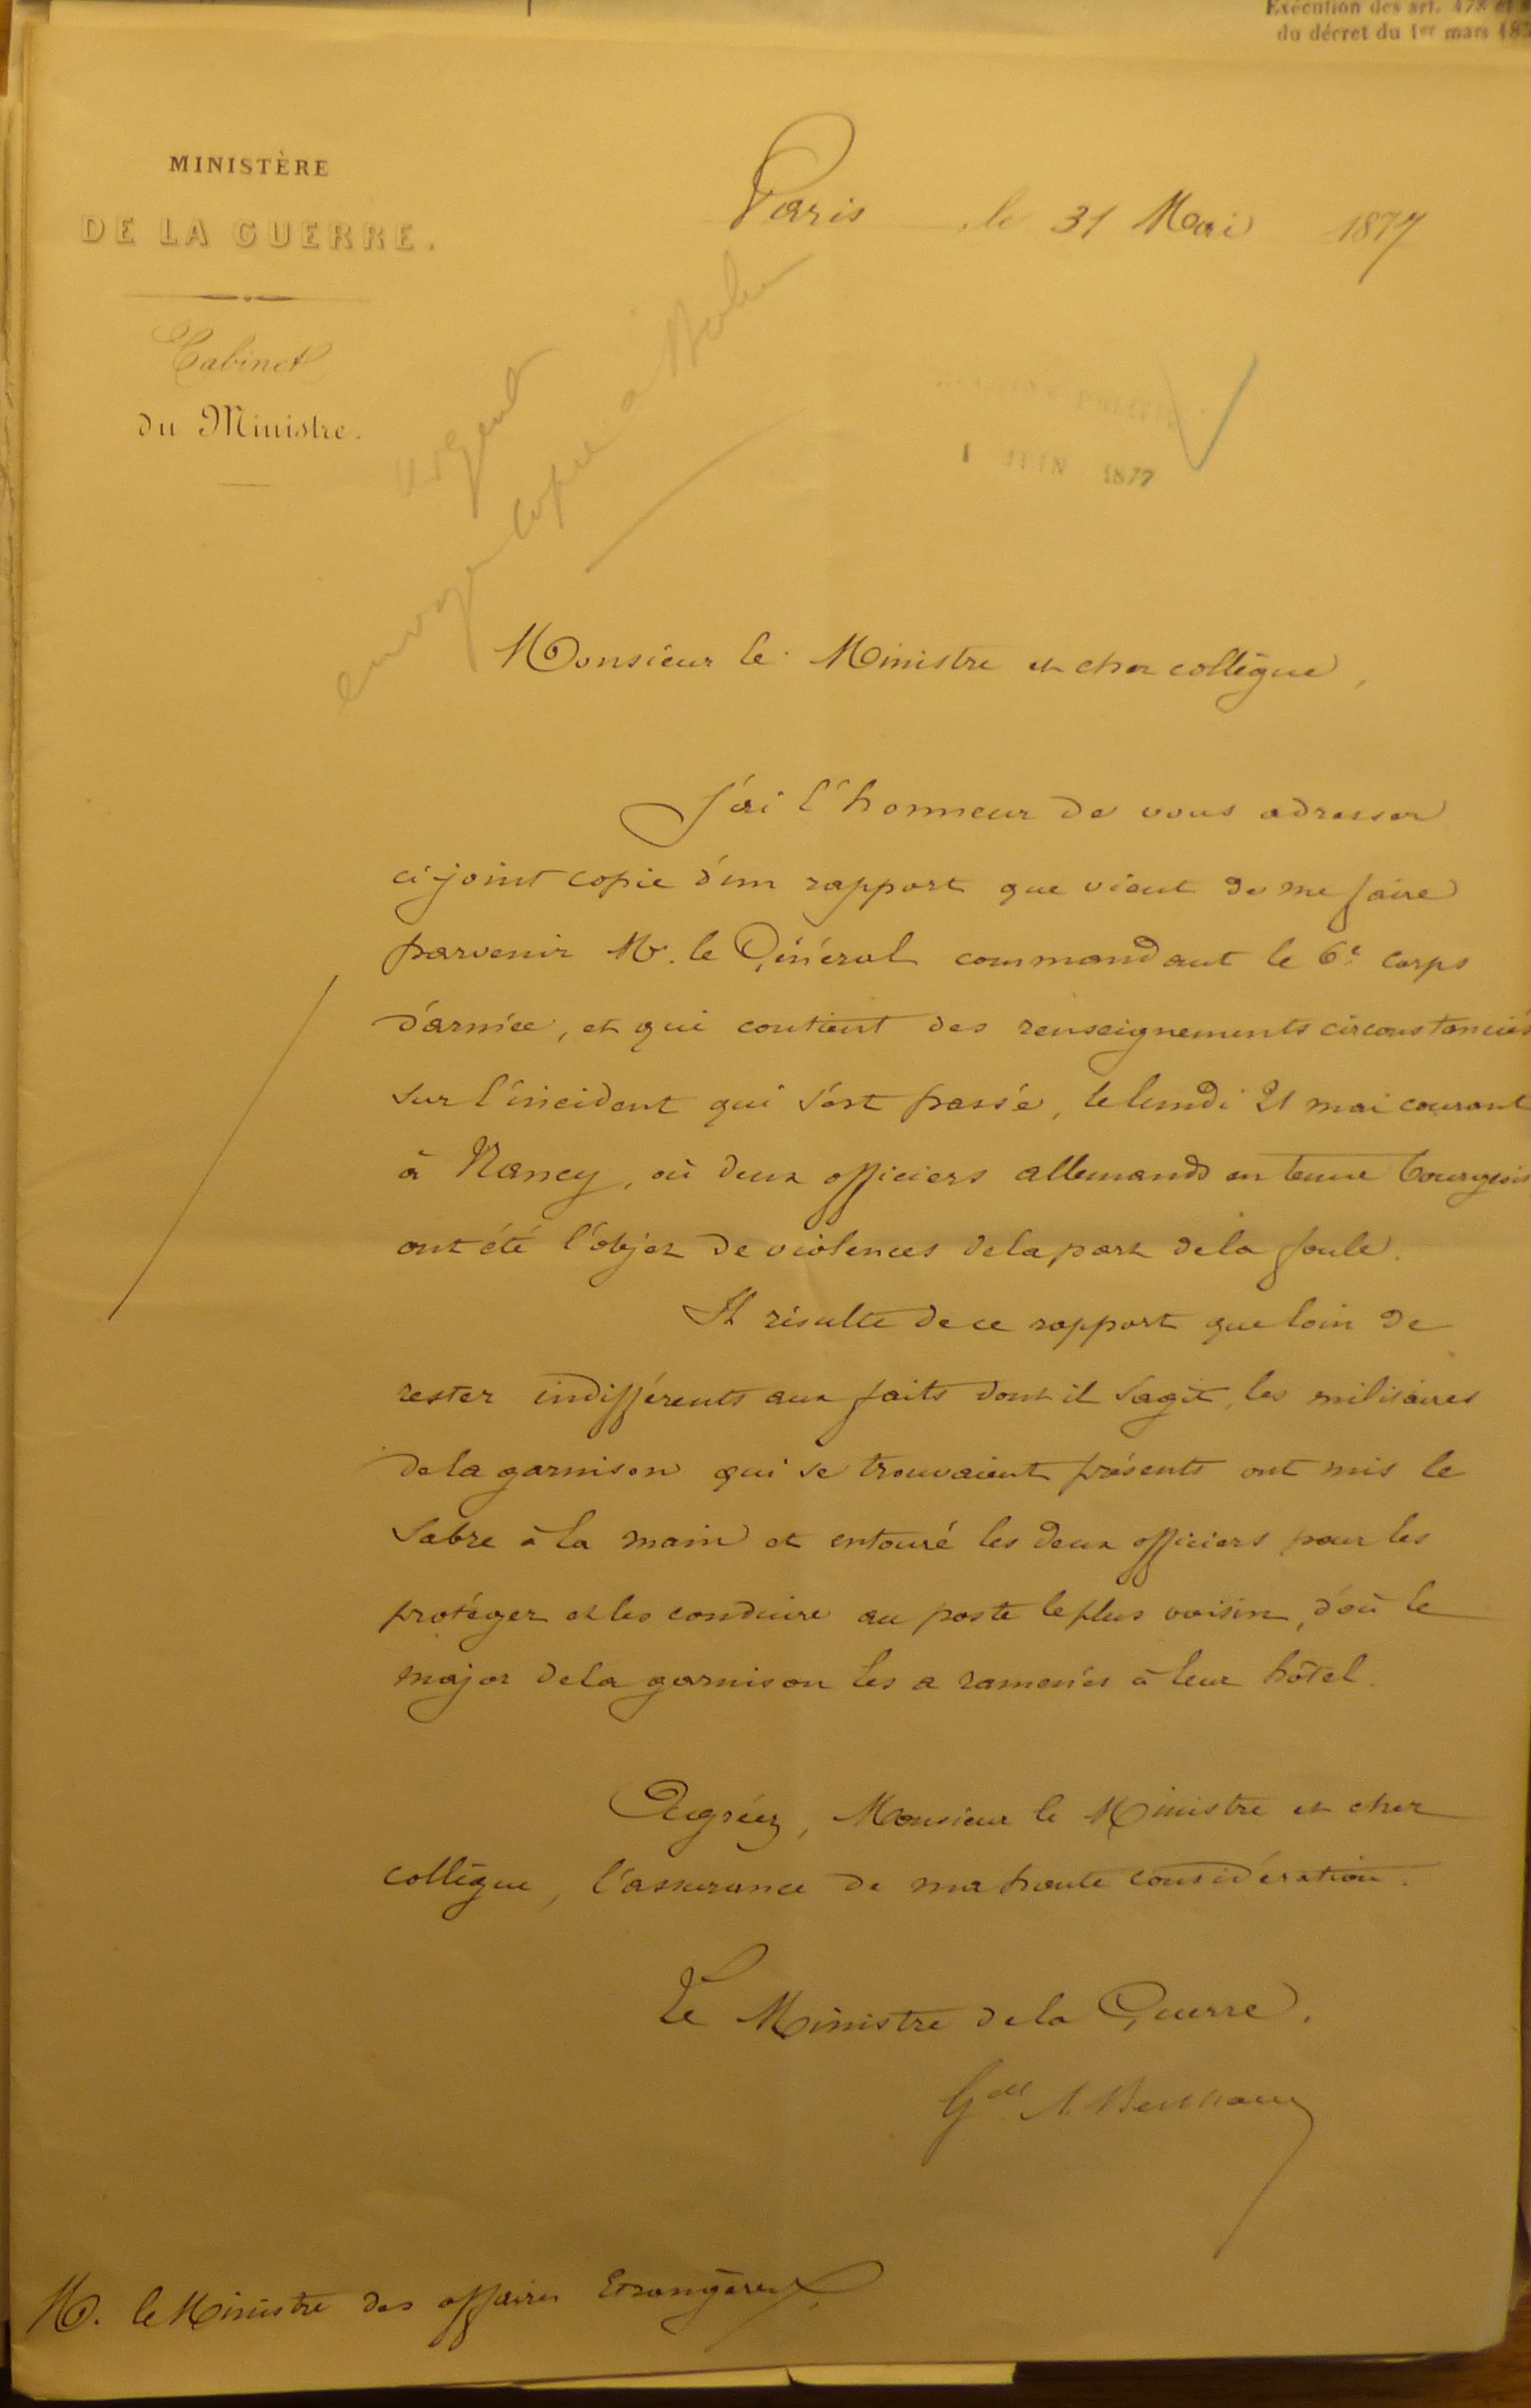 Exécution des art. 478 et
du décret du 1er mars 185
MINISTÈRE
DE LA GUERRE.
Cabinet
du Ministre.
Paris, le 31 Mai 1877
urgent
envoyer copie a Berlin
1 JUIN 1877
Monsieur le Ministre et cher collègue,
J'ai l'honneur de vous adresser
ci-joint copie d'un rapport que vient de me faire
parvenir M. le Général commandant le 6e corps
d'armée, et qui contient des renseignements circonstanciés
sur l'incident qui s'est passé, le lundi 21 mai courant
à Nancy, où deux officiers allemands en tenue bourgeoise
ont été l'objet de violences de la part de la foule.
Il résulte de ce rapport que loin de
rester indifférents aux faits dont il s'agit, les militaires
de la garnison qui se trouvaient présents ont mis le
sabre à la main et entouré les deux officiers pour les
protéger et les conduire au poste le plus voisin, d'où le
major de la garnison les a ramenés à leur hôtel.
Agréez, Monsieur le Ministre et cher
collègue, l'assurance de ma haute considération.
Le Ministre de la Guerre.
Gal A. Berthaut
M. le Ministre des affaires Etrangères.